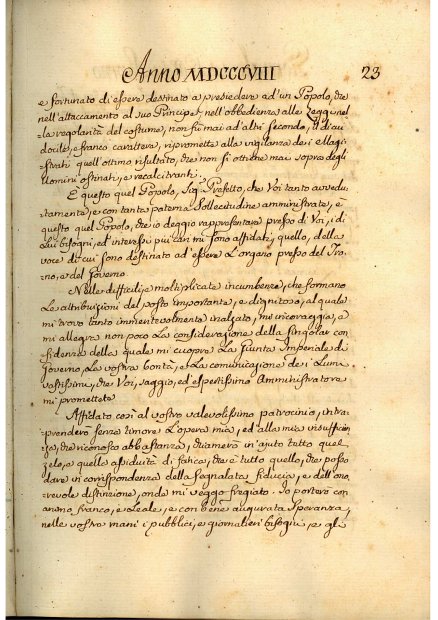 Anno MDCCCVIII 23
e fortunato di essere destinato a presiedere ad'un Popolo, che
nell'attaccamento al suo Principe, nell'obbedienza alle Leggi, nel
-la regolarità del costume, non fù mai ad'altri secondo, il di cui
docile, e franco carattere, ripromette alla vigilanza de i Magi-
strati quell'ottimo risultato, che non si ottiene mai sopra degli
Uomini ostinati, e recalcitranti.
E questo quel Popolo, Sig.r Prefetto, che Voi tanto avvedu-
tamente, e con tanta paterna Sollecitudine amministrate, è
questo quel Popolo, che io deggio rappresentare presso di Voi, i di
Lui bisogni, ed interessi più cari mi sono affidati, quello, della
voce di cui sono destinato ad'essere L'organo presso del Tro-
no, e del Governo
Nelle difficili, e moltiplicate incumbenze, che formano
Le attribuzioni del posto importante, e dignitoso, al quale
mi trovo tanto immeritevolmente inalzato, mi incoraggia, e
mi allegra non poco La considerazione della singolar con-
fidenza della quale mi cuopre La Giunta Imperiale di
Governo, La vostra bontà, e La comunicazione de i Lumi
vastissimi, che Voi, saggio, ed'espertissimo Amministratore
mi promettete
Affidato così al vostro valevolissimo patrocinio, intra-
prenderò senza timore L'opera mia, ed alla mia insufficien-
za, che riconosco abbastanza, chiamerò in'ajuto tutto quel
zelo, e quella assiduità di fatica, che è tutto quello, che posso
dare in corrispondenza della Segnalata fiducia, e dell'ono-
revole distinzione, onde mi veggo fregiato. Io porterò con
animo franco, e Leale, e con bene augurata Speranza,
nelle vostre mani i pubblici, e giornalieri bisogni, e gli